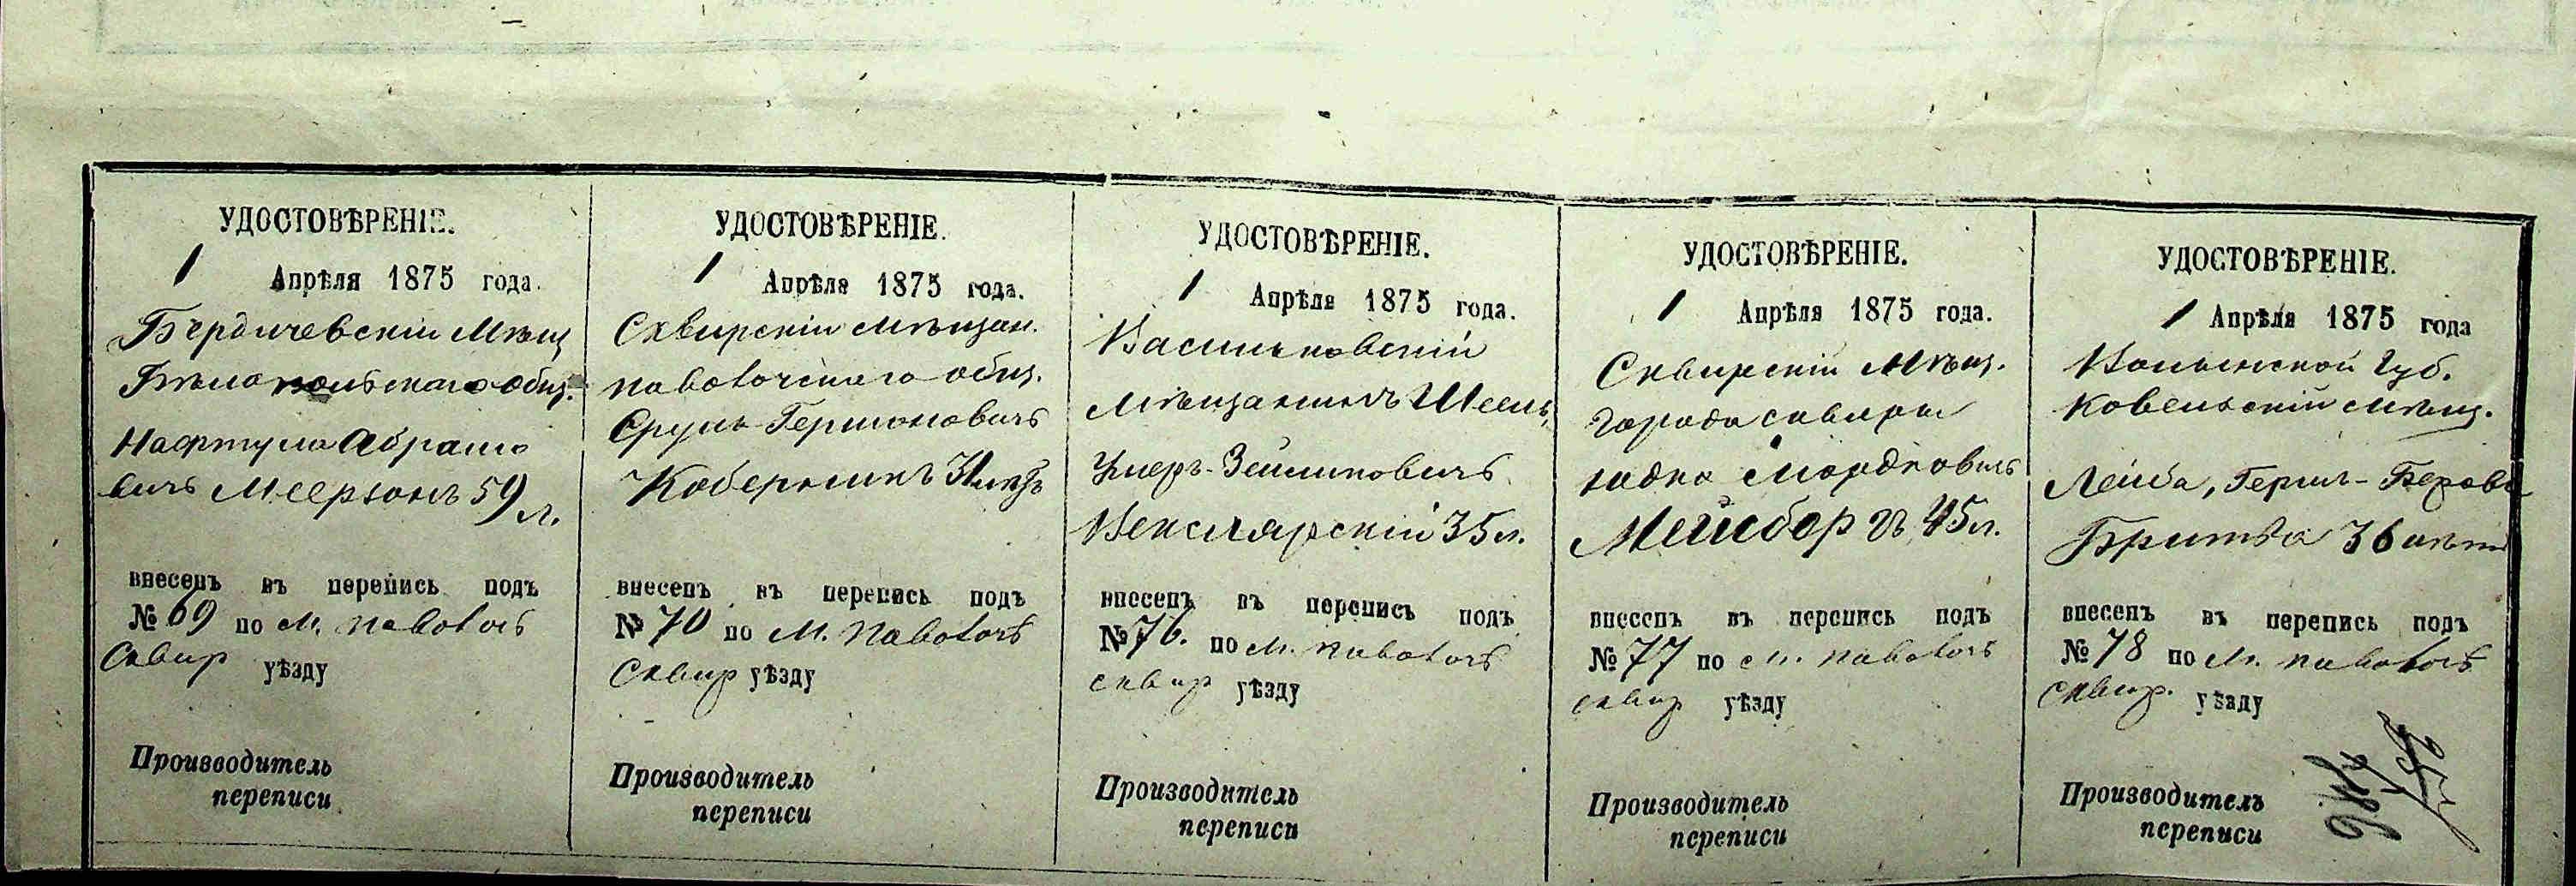 УДОСТОВѢРЕНІЕ.
1 Апрѣля 1875 года.
Бердичевскій Мѣщ
Бѣлопольскаго общ.
Нафтула Абрамо
вичъ Меерзонъ 59 л.
внесенъ въ перепись подъ
№ 69 по м. Паволочъ
Сквир уѣзду
Производитель
переписи
УДОСТОВѢРЕНІЕ.
1 Апрѣля 1875 года.
Сквирскій мѣщан.
паволочскаго общ.
Сруль Гершоновичъ
внесенъ въ перепись подъ
№ 70 по м. Паволочъ
Сквир уѣзду
Производитель
переписи
УДОСТОВѢРЕНІЕ.
1 Апрѣля 1875 года.
Васильковскій
мѣщанинъ
Векслярскій 35 л.
внесенъ въ перепись подъ
№ 76. по м. Паволочъ
сквир уѣзду
Производитель
переписи
УДОСТОВѢРЕНІЕ.
1 Апрѣля 1875 года.
Сквирскій Мѣщ.
города сквиры
Мордковичъ
Мейсборгъ 45 л.
внесенъ въ перепись подъ
№ 77 по м. Паволочъ
сквир уѣзду
Производитель
переписи
УДОСТОВѢРЕНІЕ.
1 Апрѣля 1875 года
Волынской Губ.
Ковельскій мѣщ.
Лейба, Герш-Беров
Бритва 36 лѣтъ
внесенъ въ перепись подъ
№ 78 по м. Паволочъ
сквир. уѣзду
Производитель
переписи